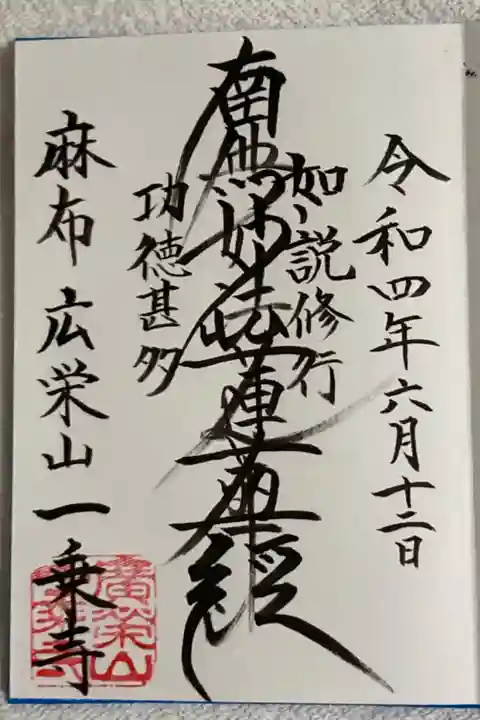 令和四年六月十二日
如説修行
南無妙法蓮華経
功徳甚多
麻布 広栄山一乗寺
廣栄山